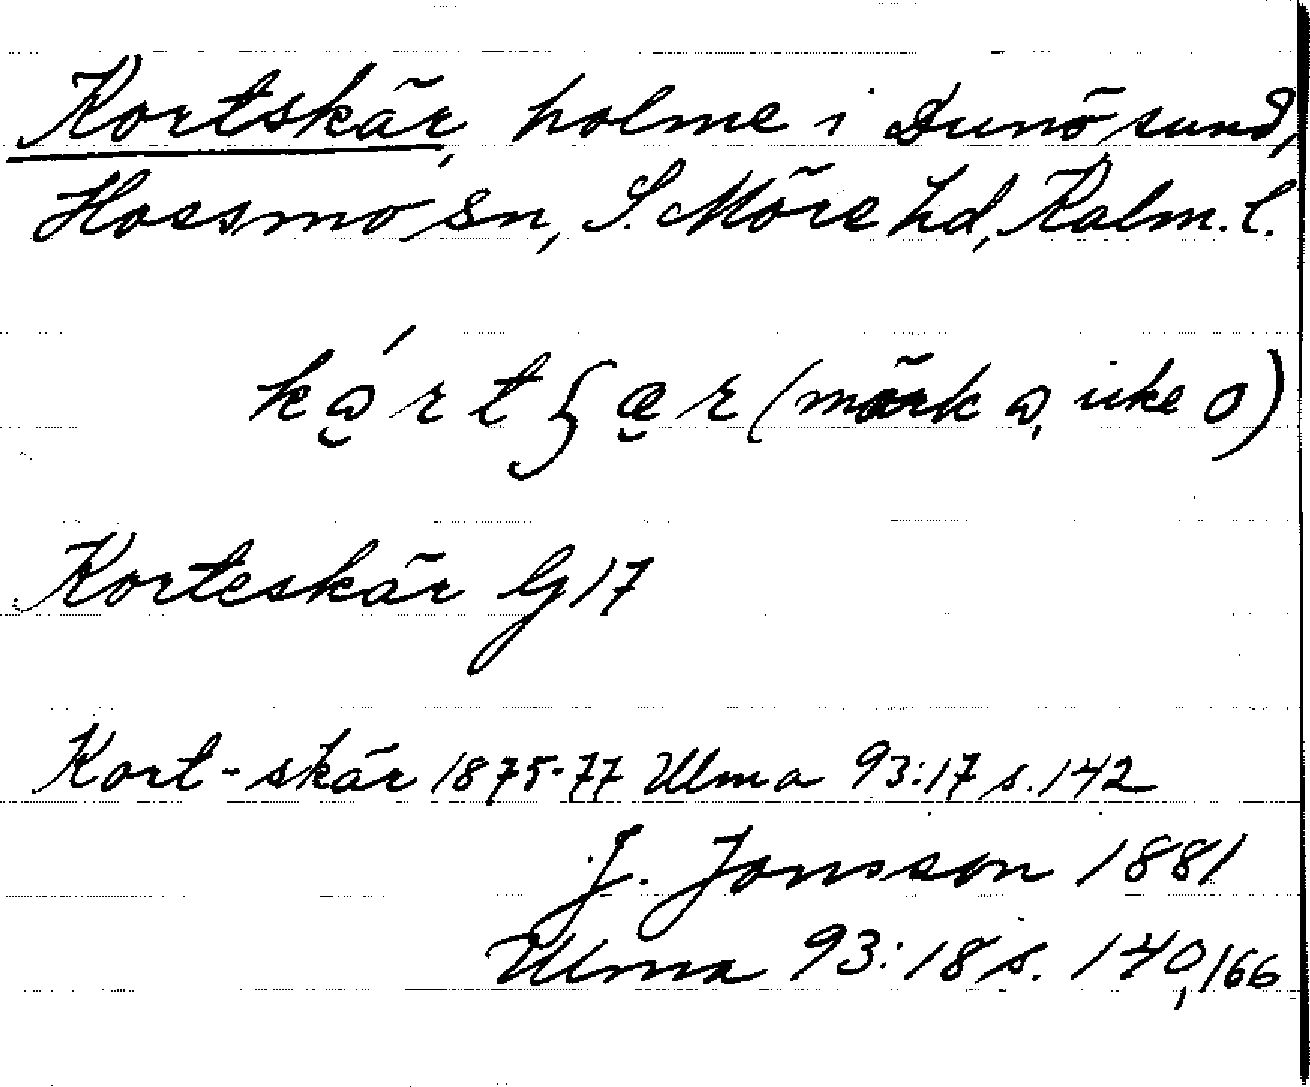 Kortskär, holme i Dunö sund,
Hossmo sn, S. Möre hd, Kalm. l.
(märk icke o)
Korteskär G 17
Kort-skär 1875-77 Ulma 93:17 s. 142
J. Jonsson 1881
Ulma 93:18 s. 140, 166